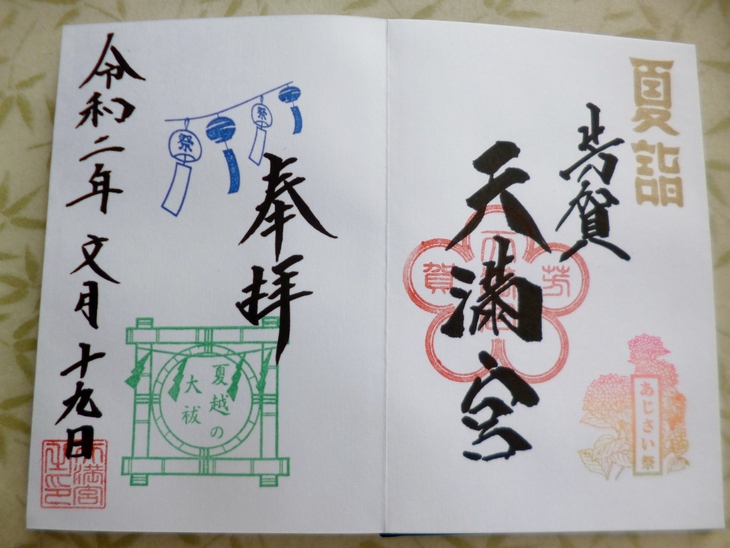 夏詣
芳賀
天満宮
芳賀
あじさい祭
奉拝
祭
祭
夏越の
大祓
令和二年 文月 十九日
天満宮